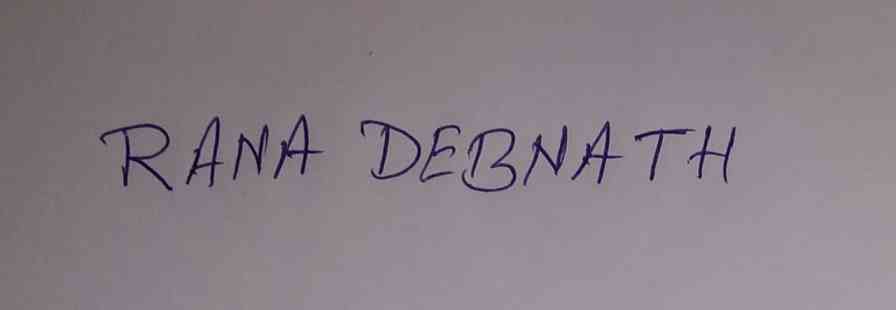 RANA DEBNATH